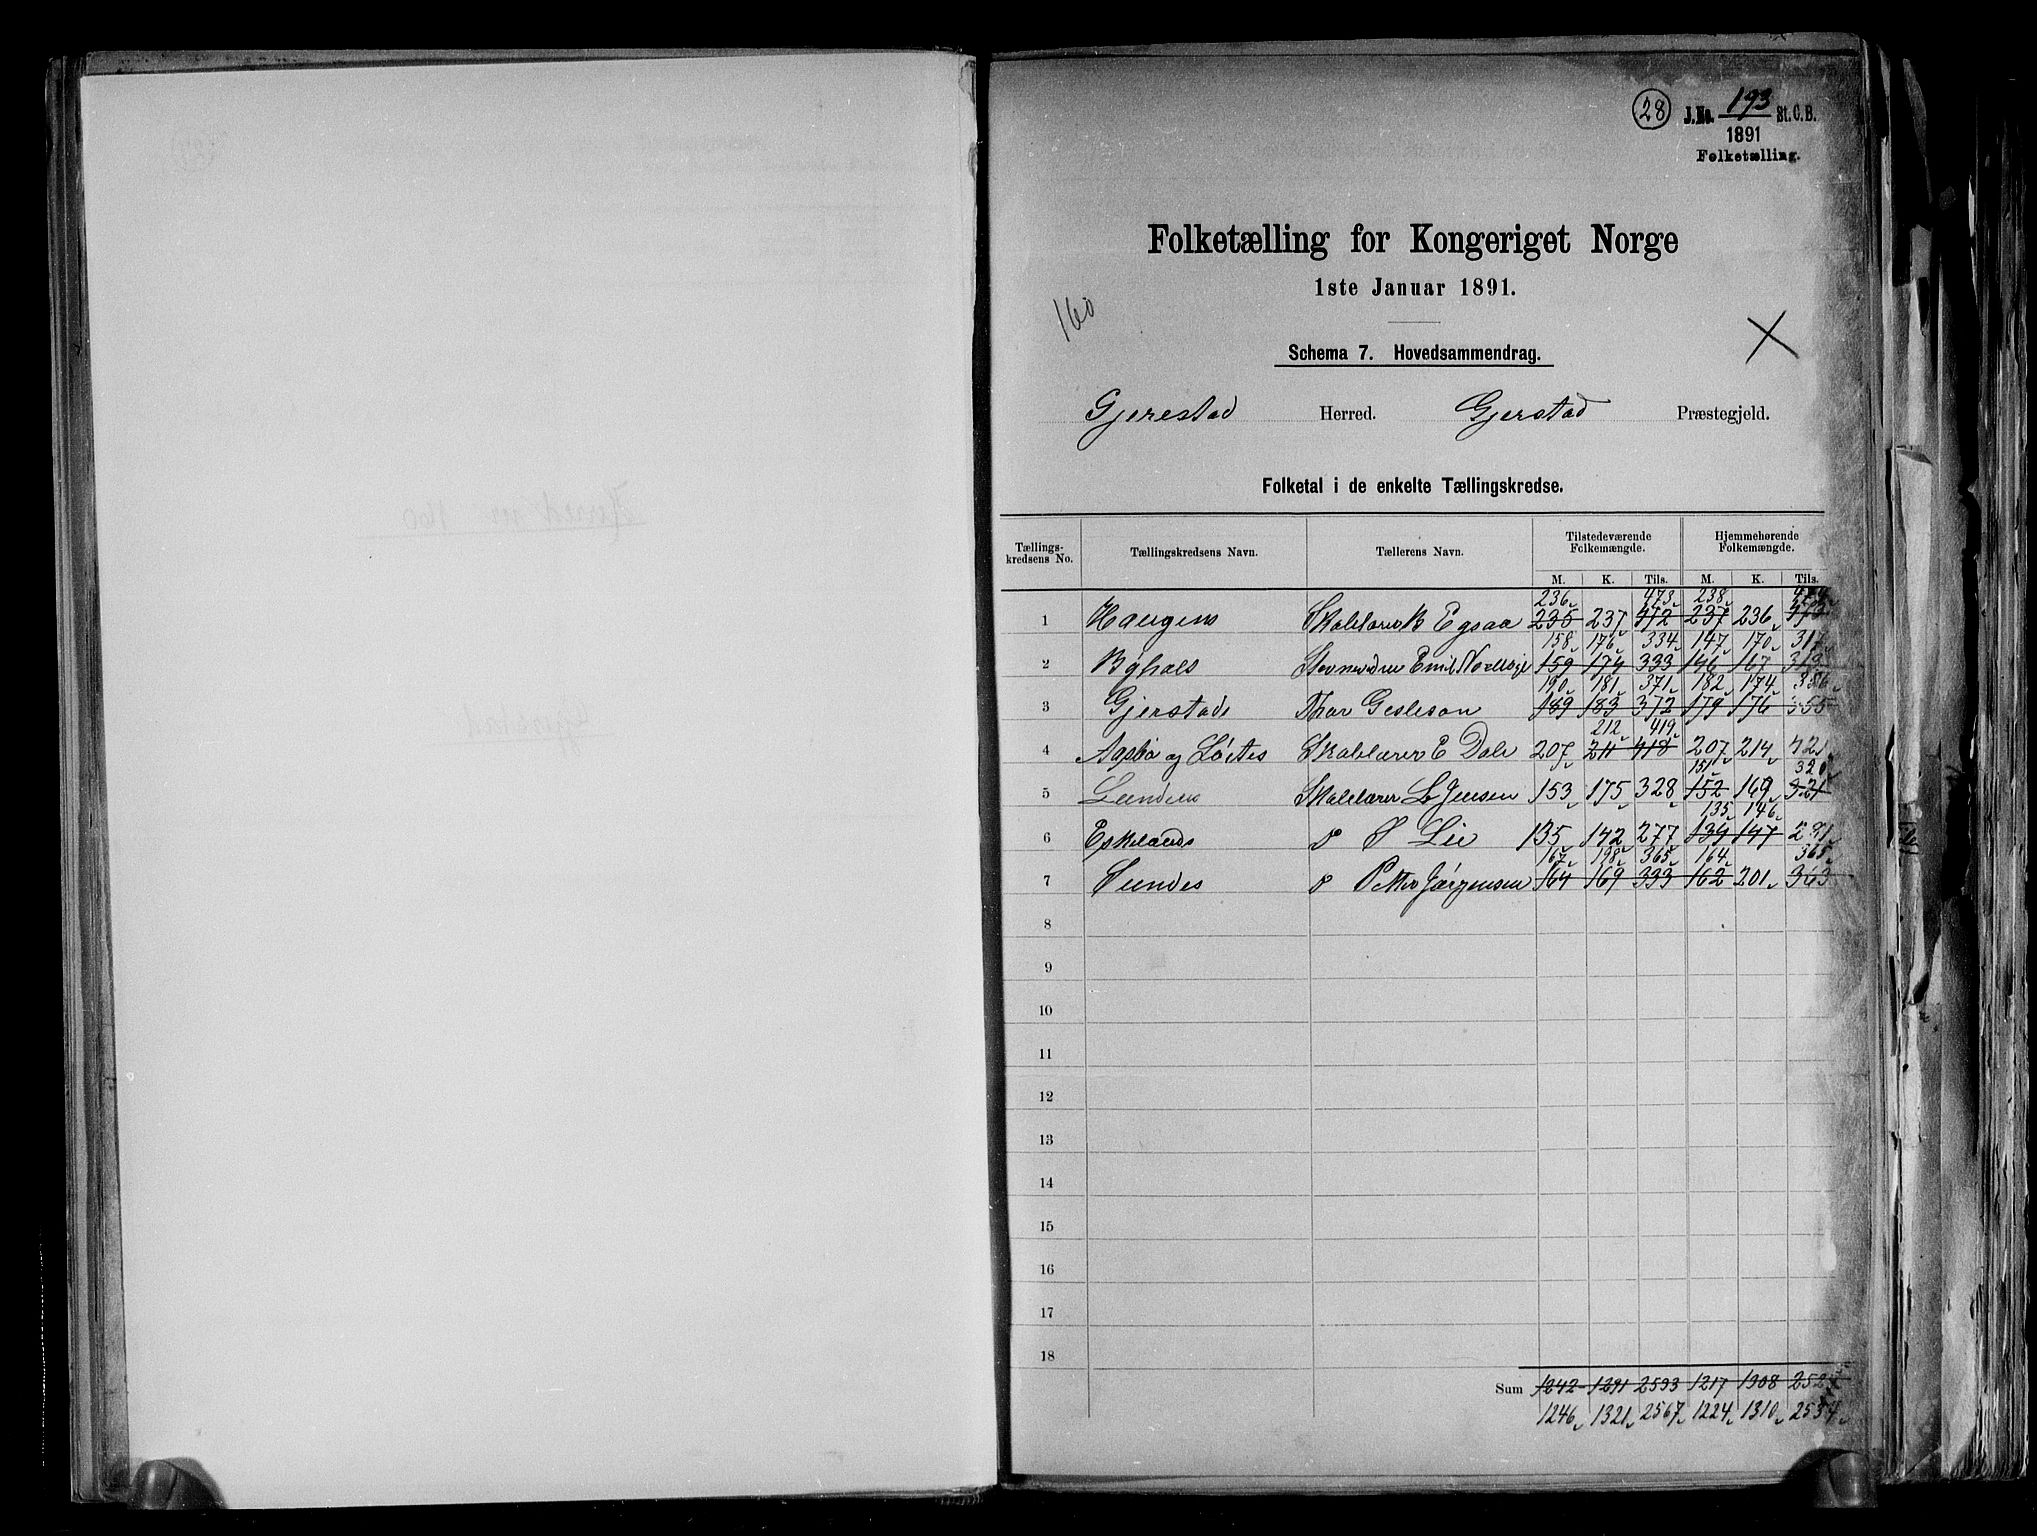 28
J.No. 193 St. C. B.
1891
Folketælling.
Folketælling for Kongeriget Norge
1ste Januar 1891.
160
Schema 7. Hovedsammendrag.
Gjerestad Herred. Gjerstad Præstegjeld.
Folketal i de enkelte Tællingskredse.
Tællings-kredsens No. Tællingskredsens Navn. Tællerens Navn. Tilstedeværende Folkemængde. Hjemmehørende Folkemængde.
M. K. Tils. M. K. Tils.
236 473 238 474
1 Haugens Skolelærer B Egsaa 235 237 472 237 236 473
158 176 334 147 170 317
2 Byhols Emil 159 174 333 146 167 313
190 181 371 182 174 356
3 Gjerstads Thor 189 183 372 179 176 355
212 419
4 og Skolelærer E Dale 207 211 418 207 214 421
151 320
5 Lundens Skolelærer L Jensen 153 175 328 152 169 321
135 146
6 Eskelands d° Lie 135 142 277 134 147 281
167 198 365 164 365
7 Sundes d° Jørgensen 164 169 333 162 201 363
8
9
10
11
12
13
14
15
16
17
18
Sum 1242 1291 2533 1217 1308
1246 1321 2567 1224 1310 2534